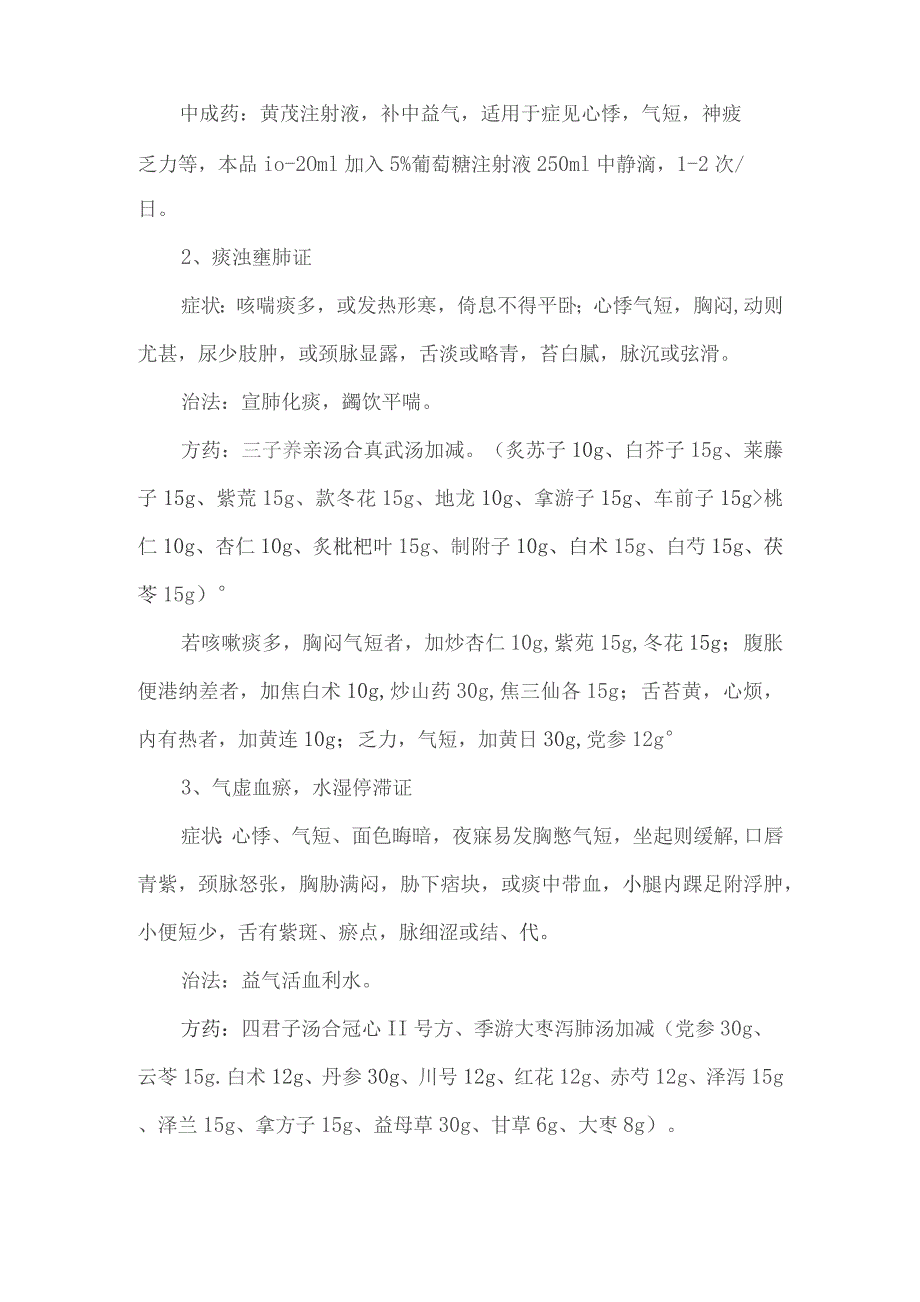 中成药：黄茂注射液，补中益气，适用于症见心悸，气短，神疲
乏力等，本品 io-20ml 加入 5%葡萄糖注射液 250ml 中静滴，1-2 次/
日。
2、痰浊壅肺证
症状：咳喘痰多，或发热形寒，倚息不得平卧；心悸气短，胸闷,动则
尤甚，尿少肢肿，或颈脉显露，舌淡或略青，苔白腻，脉沉或弦滑。
治法：宣肺化痰，蠲饮平喘。
方药：三子养亲汤合真武汤加减。（炙苏子 10g、白芥子 15g、莱藤
子 15g、紫荒 15g、款冬花 15g、地龙 10g、拿游子 15g、车前子 15g>桃
仁 10g、杏仁 10g、炙枇杷叶 15g、制附子 10g、白术 15g、白芍 15g、茯
苓 15g）°
若咳嗽痰多，胸闷气短者，加炒杏仁 10g,紫苑 15g,冬花 15g；腹胀
便港纳差者，加焦白术 10g,炒山药 30g,焦三仙各 15g；舌苔黄，心烦，
内有热者，加黄连 10g；乏力，气短，加黄日 30g,党参 12g°
3、气虚血瘀，水湿停滞证
症状：心悸、气短、面色晦暗，夜寐易发胸憋气短，坐起则缓解,口唇
青紫，颈脉怒张，胸胁满闷，胁下痞块，或痰中带血，小腿内踝足附浮肿，
小便短少，舌有紫斑、瘀点，脉细涩或结、代。
治法：益气活血利水。
方药：四君子汤合冠心 II 号方、季游大枣泻肺汤加减（党参 30g、
云苓 15g.白术 12g、丹参 30g、川号 12g、红花 12g、赤芍 12g、泽泻 15g
、泽兰 15g、拿方子 15g、益母草 30g、甘草 6g、大枣 8g）。